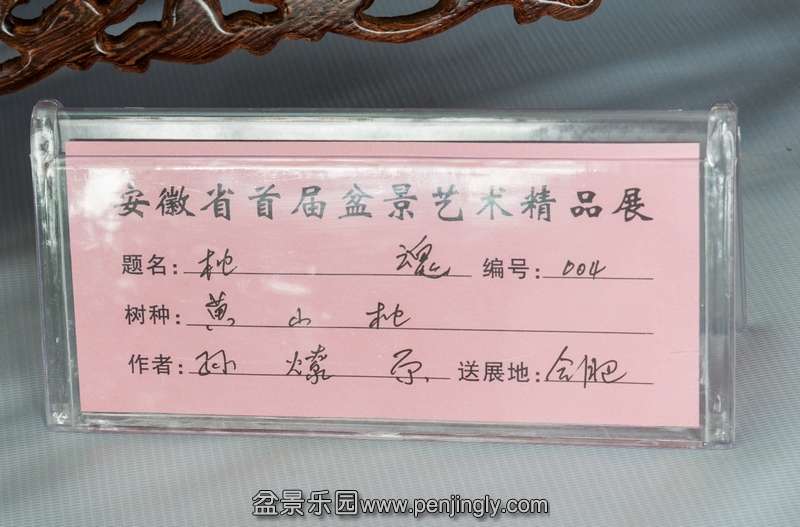 安徽省首届盆景艺术精品展
题名: 松 魂 编号: 004
树种: 黄山松
作者: 孙燎原 送展地: 合肥
盆景乐园www.penjingly.com